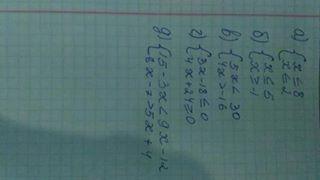 а) { x ≤ 8
x ≤ 2
б) { x ≤ 5
x > -1
в) { 5x < 30
4x > -16
г) { 3x - 18 ≤ 0
4x + 24 ≥ 0
д) { 5 - 3x < 9x - 12
8x - 7 > 5x + 4